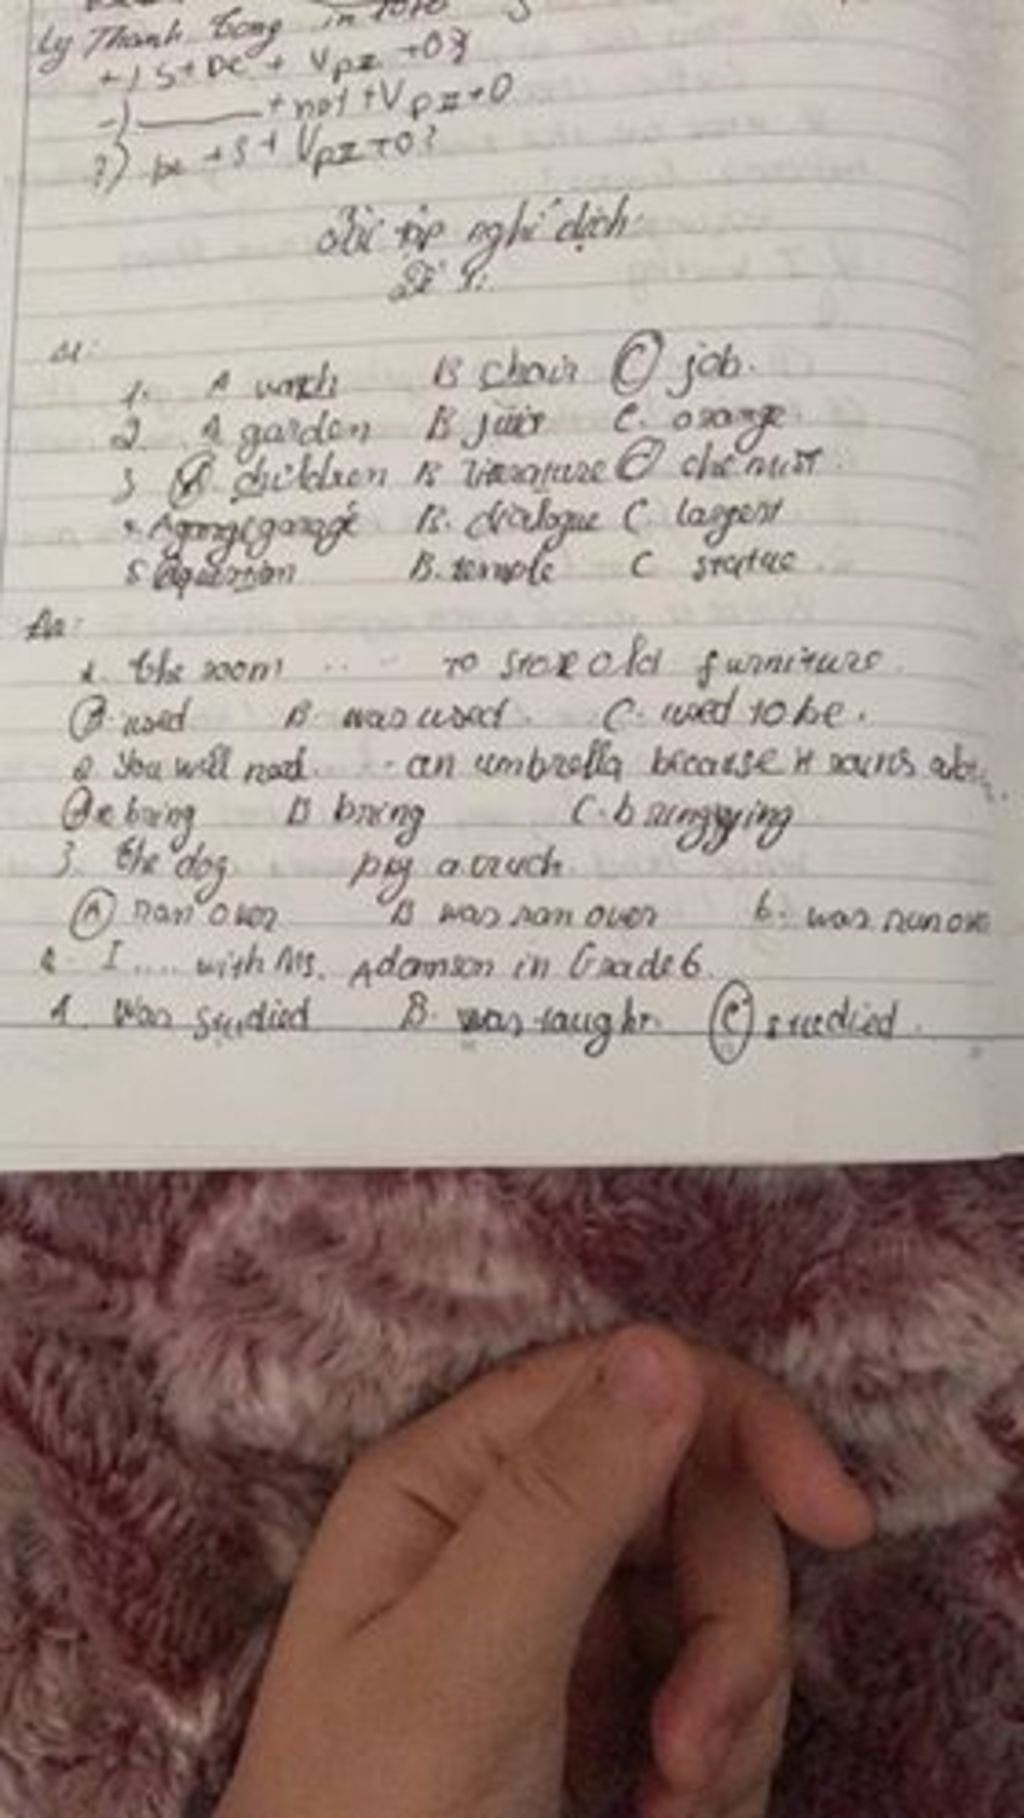 Ly Thanh Tong in 1010
+) S + be + VpII + O
-) ____ + not + VpII + O
?) be + S + VpII + O?
Bài tập nghỉ dịch
Đề 1:
1. A watch B chair C job.
2. A garden B C. orange
3 A children B literature C chemist
4. A garage B. dialogue C largest
5 A question B. temple C statue
1. The room .... to store old furniture
A. used B. was used. C. used to be.
2 You will need ... an umbrella because it rains
bring B bring C.
3. The dog by a truck.
A ran over B was ran over C. was run over
4. I .... with Ms. Adamson in Grade 6.
A. Was studied B. was taught C studied.